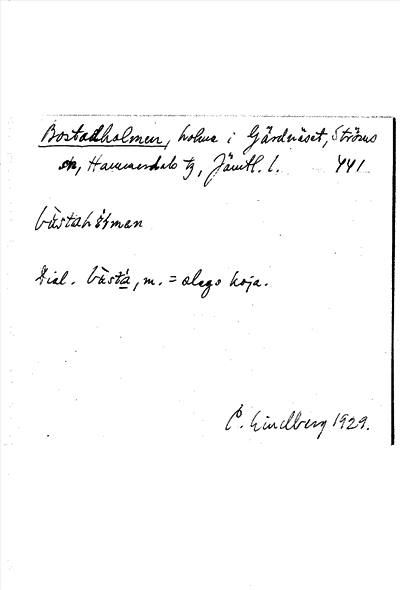 Bostadholmen, holme i Gärdnäset, Ströms
sn, Hammerdals tg, Jämtl. l. 441
bùstahòḷman
Dial. bùsta, m. = slags koja.
C. Lindberg 1929.